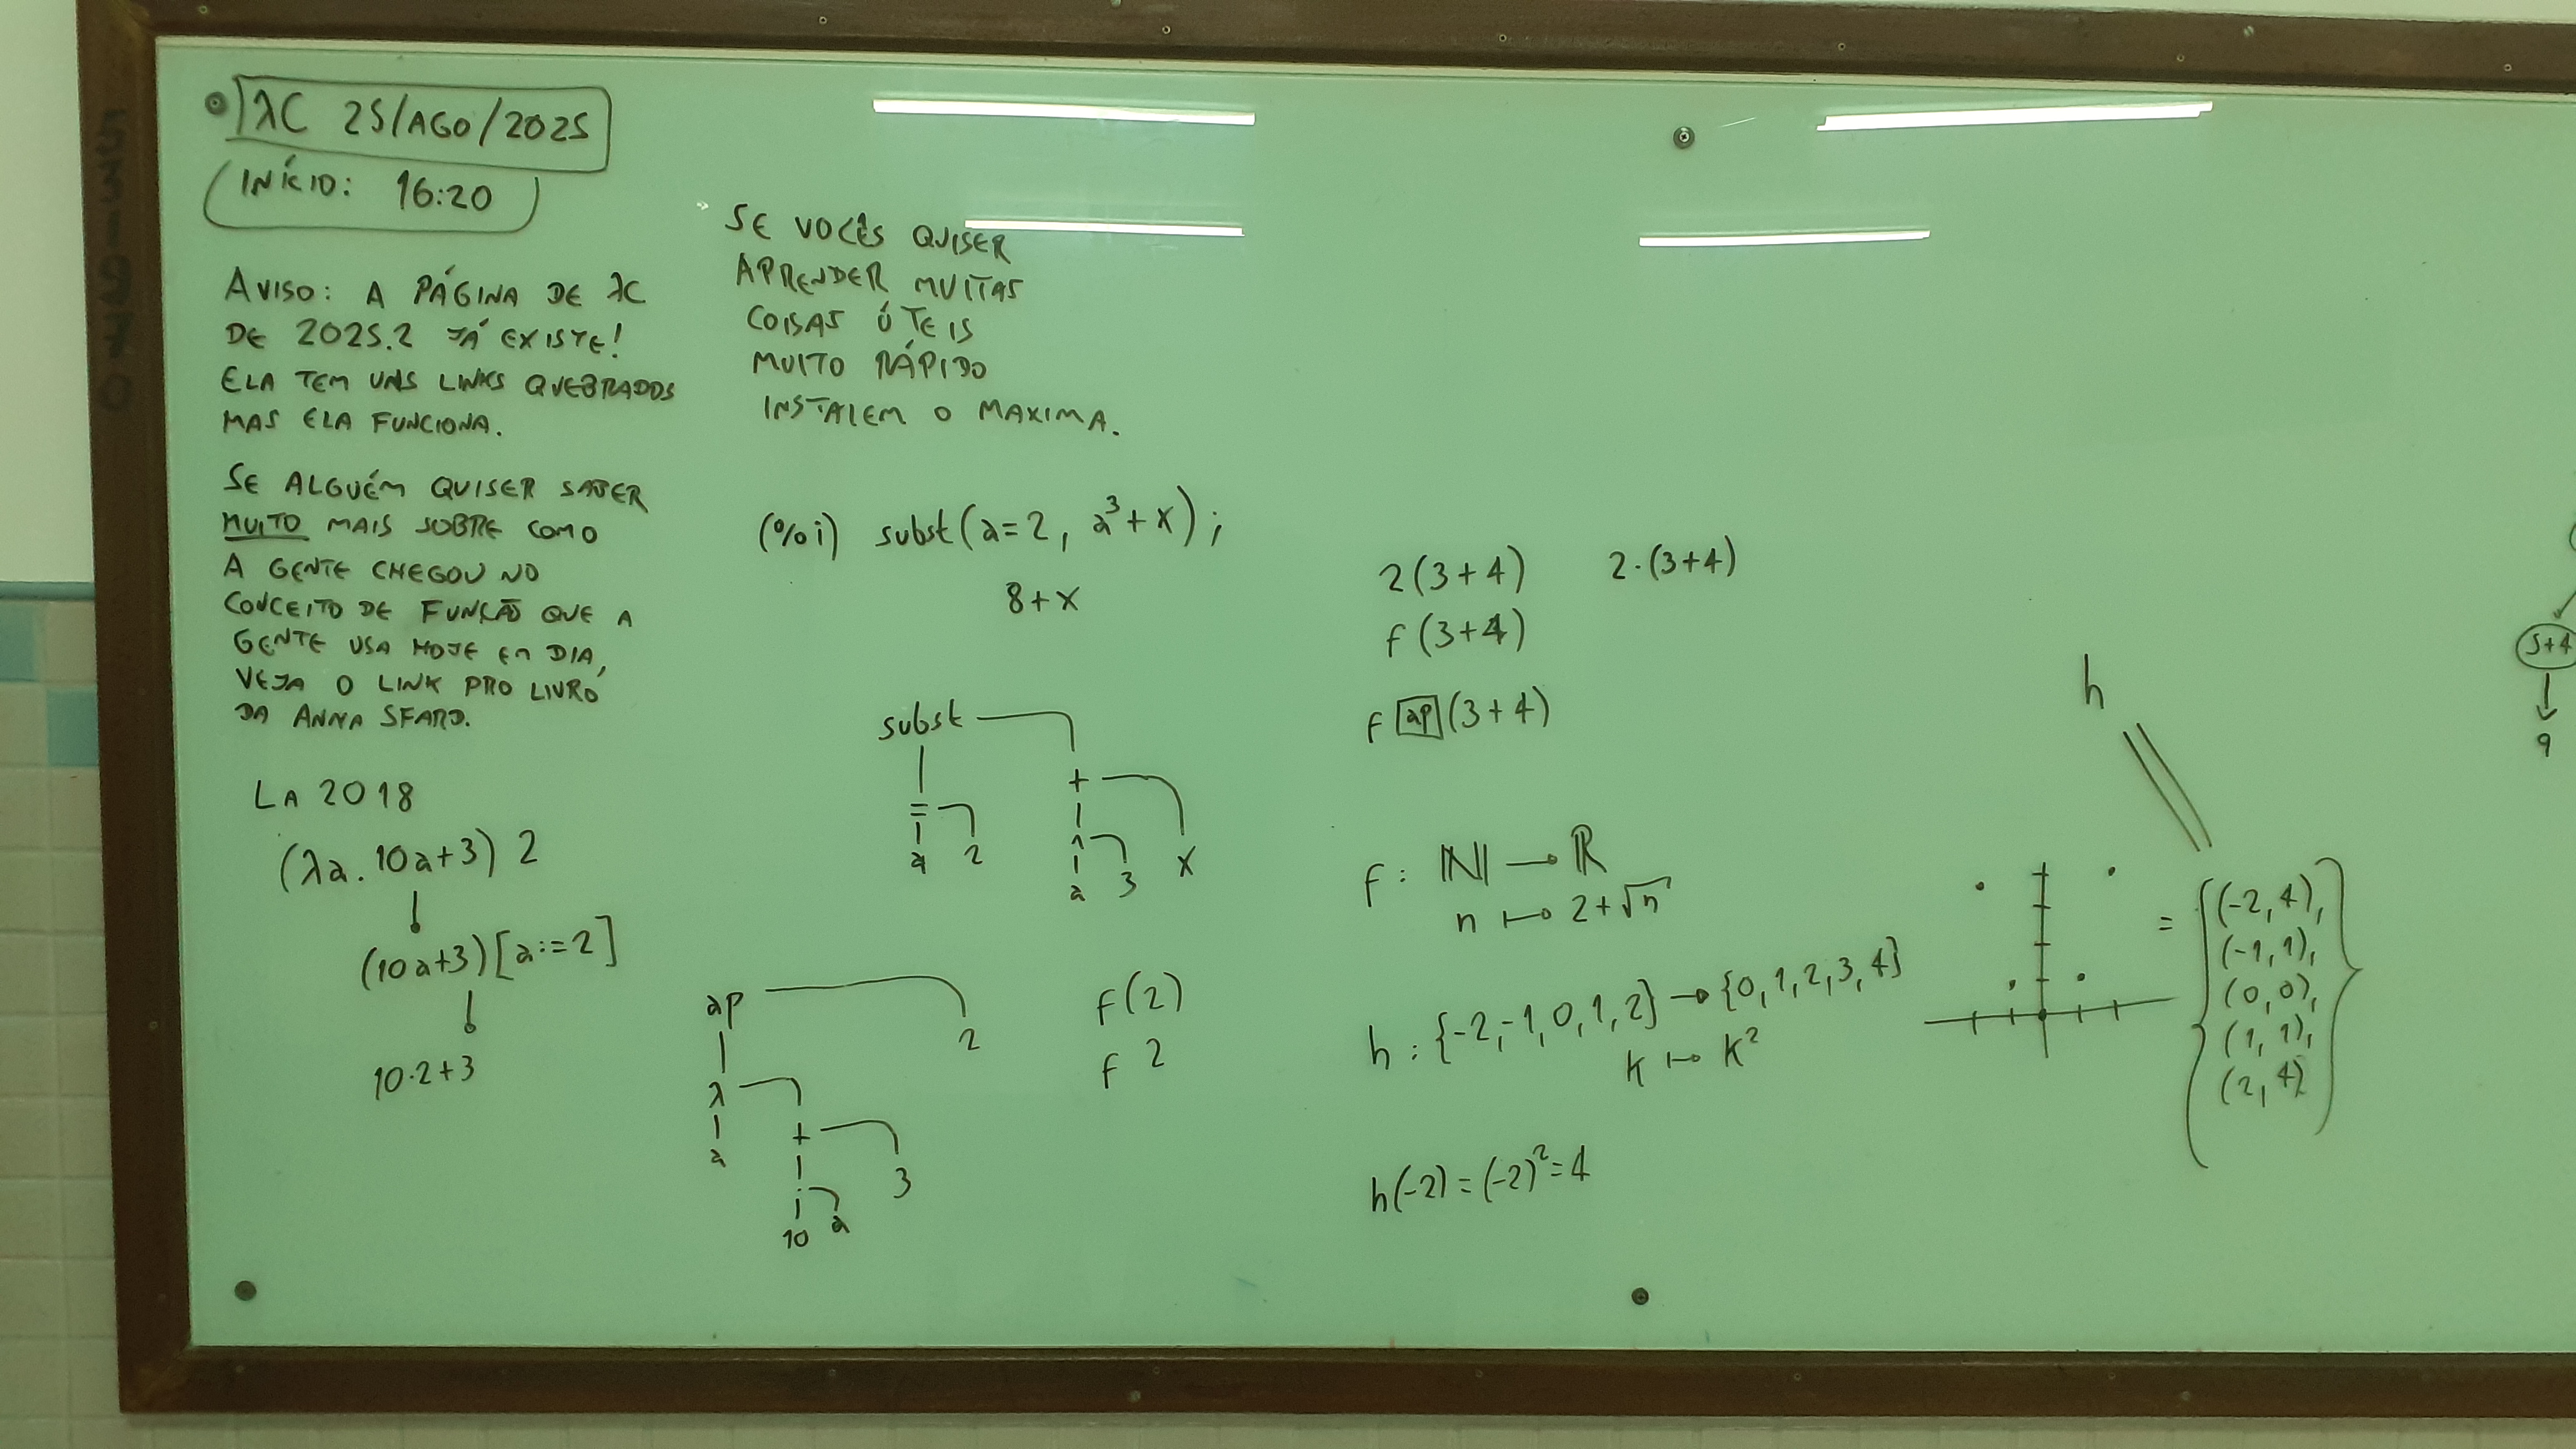 λC 25/AGO/2025
INÍCIO: 16:20
AVISO: A PÁGINA DE λC
DE 2025.2 JÁ EXISTE!
ELA TEM UNS LINKS QUEBRADOS
MAS ELA FUNCIONA.
SE ALGUÉM QUISER SABER
MUITO MAIS SOBRE COMO
A GENTE CHEGOU NO
CONCEITO DE FUNÇÃO QUE A
GENTE USA HOJE EM DIA,
VEJA O LINK PRO LIVRO
DA ANNA SFARD.
LA 2018
(λa. 10a+3) 2
(10a+3)[a:=2]
10·2+3
SE VOCÊS QUISER
APRENDER MUITAS
COISAS ÚTEIS
MUITO RÁPIDO
INSTALEM O MAXIMA.
(%i) subst(a=2, a³+x);
8+x
subst
= +
a 2 ^ x
a 3
ap
2
λ
a + 3
· a
10
f(2)
f 2
2(3+4) 2·(3+4)
f(3+4)
f ap (3+4)
f: ℕ → ℝ
n ↦ 2+√n
h: {-2,-1,0,1,2} → {0,1,2,3,4}
k ↦ k²
h(-2) = (-2)² = 4
h
= {(-2,4),
(-1,1),
(0,0),
(1,1),
(2,4)}
5+4
9